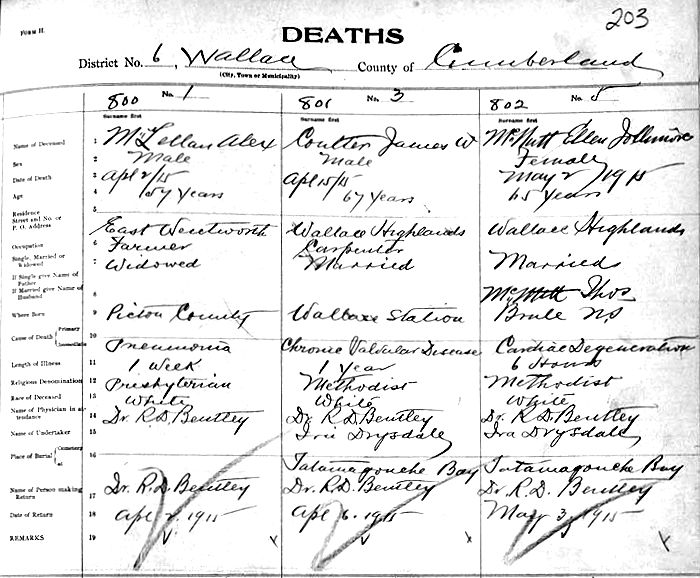 203
FORM H.
DEATHS
District No. 6, Wallace County of Cumberland
(City, Town or Municipality)
800 No. 1 801 No. 3 802 No. 5
Surname first Surname first Surname first
Name of Deceased 1 McLellan Alex Coulter James W McNutt Ellen Jollimore
Sex 2 Male Male Female
Date of Death 3 Apl 2/15 Apl 15/15 May 2/1915
Age 4 57 Years 67 Years 65 Years
Residence 5
Street and No. or
P. O. Address East Wentworth Wallace Highlands Wallace Highlands
Occupation 6 Farmer Carpenter
Single, Married or
Widowed 7 Widowed Married Married
If Single give Name of
Father
If Married give Name of
Husband 8 McNutt Thos
Where Born 9 Pictou County Wallace Station Brule NS
Cause of Death Primary Immediate 10 Pneumonia Chronic Valvular Disease Cardiac Degeneration
Length of Illness 11 1 Week 1 Year 6 Hours
Religious Denomination 12 Presbyterian Methodist Methodist
Race of Deceased 13 White White White
Name of Physician in at-
tendance 14 Dr. R.D. Bentley Dr. R.D. Bentley Dr. R.D. Bentley
Name of Undertaker 15 Ira Drysdale Ira Drysdale
Place of Burial Cemetery at 16 Tatamagouche Bay Tatamagouche Bay
Name of Person making
Return 17 Dr. R.D. Bentley Dr. R.D. Bentley Dr. R.D. Bentley
Date of Return 18 Apl 2, 1915 Apl 6, 1915 May 3, 1915
REMARKS 19